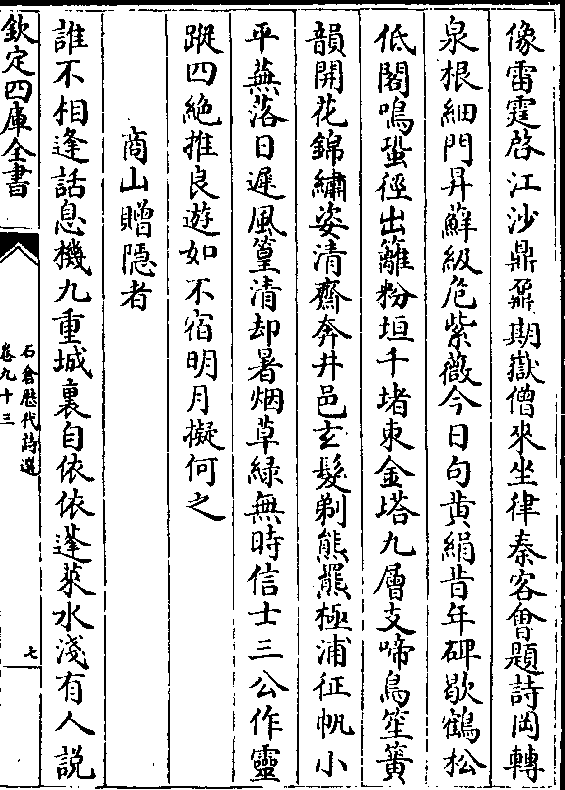 像雷霆啓江沙鼎鼐期嶽僧來坐律秦客會題詩岡轉
泉根細門昇蘚級危紫薇今日句黄絹昔年碑歇鶴松
低閣鳴蛩徑出籬粉垣千堵束金塔九層支啼鳥笙簧
韻開花錦繡姿清齋奔井邑玄髮剃熊羆極浦征帆小
平蕪落日遲風篁清却暑烟草緑無時信士三公作靈
蹤四絶推良遊如不宿明月擬何之
商山贈隱者
誰不相逢話息機九重城裏自依依蓬萊水淺有人説
欽定四庫全書
石倉歴代詩選
卷九十三
七